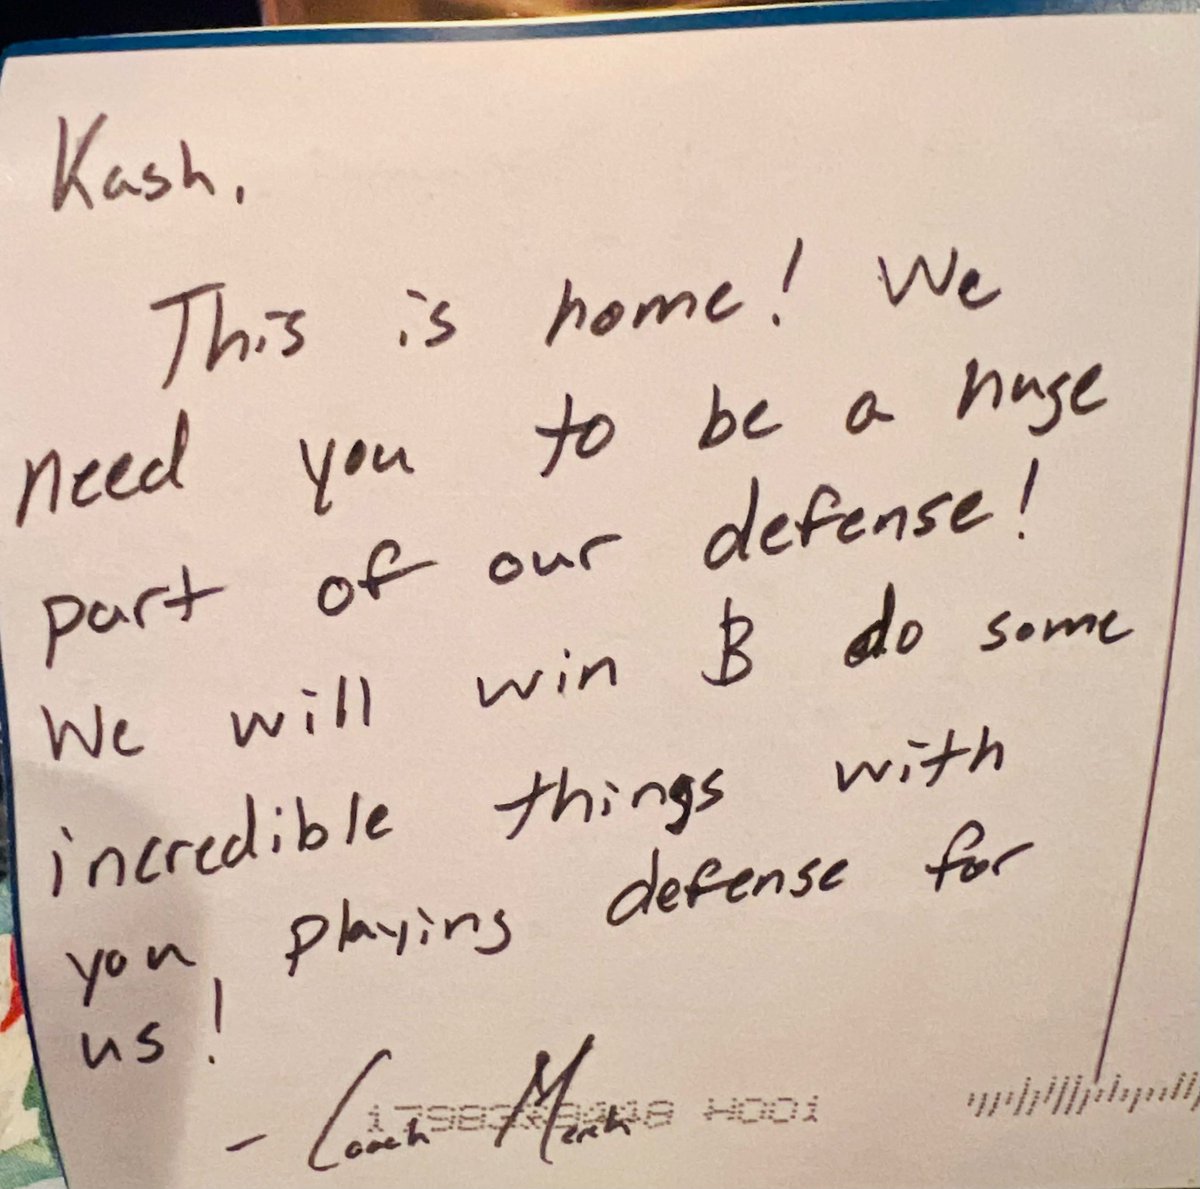 Kash,
This is home! We
need you to be a huge
part of our defense!
We will win & do some
incredible things with
you playing defense for
us!
- Coach
H001